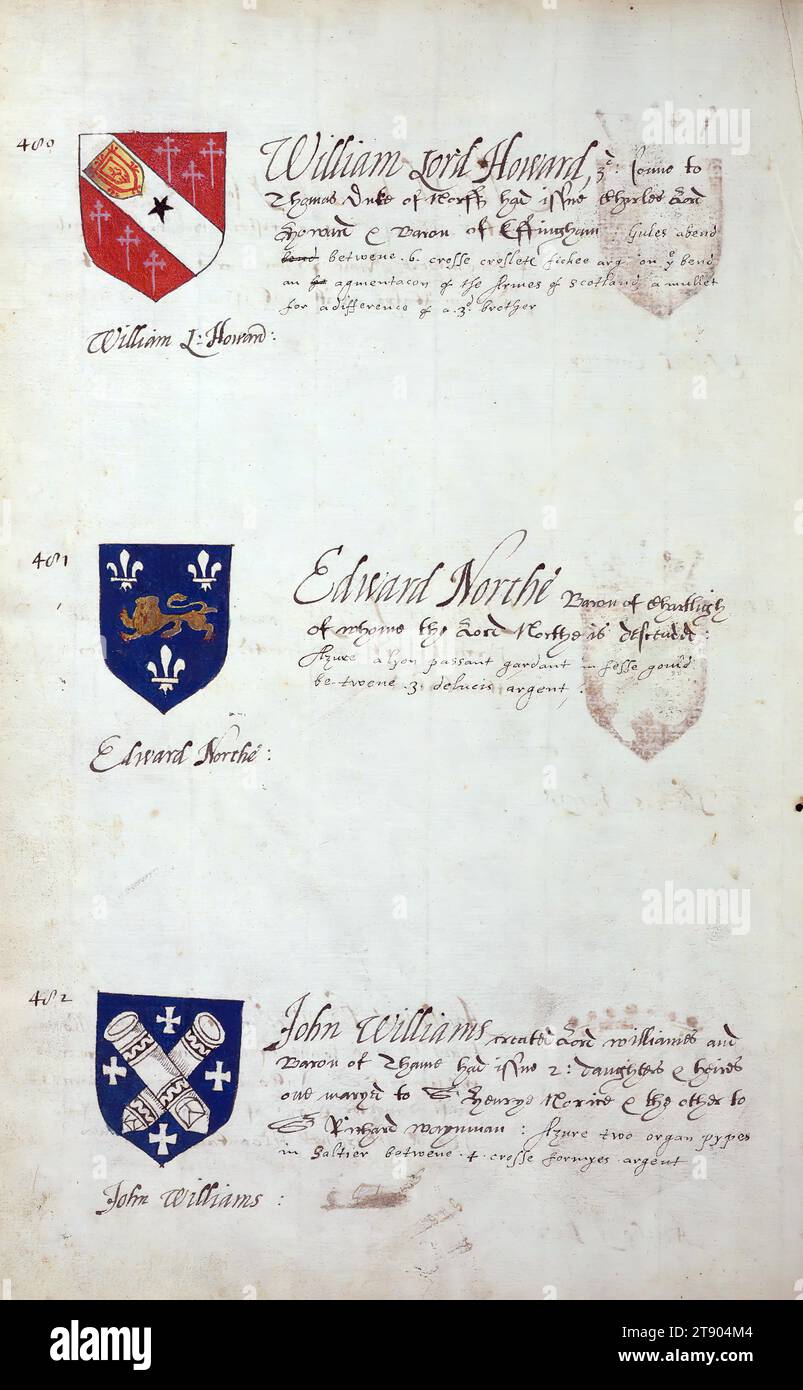 480
William Lord Howard, 3d: sonne to
Thomas Duke of Norff had issue Charles Lord
Howard & Baron of Effingham: Gules abend
bend betwene .6. crosse crosslete fichee arg on ye bend
an agmentacon of the Armes of Scotland a mullet
for a difference of a .3d. brother
William L: Howard:
481
Edward Northe Baron of Chartligh
of whome the Lord Northe is descended:
Azure a lyon passant gardant in fesse gould
betwene .3. delucis argent
Edward Northe:
482
John Williams created Lord Williames and
Baron of Thame had issue 2: daughters & heires
one maryed to Sr Henrye Norice & the other to
Sr Richard Waynman: Azure two organ pypes
in Saltier betwene .4. crosse formyes argent
John Williams:
alamy
alamy
alamy
alamy
Image ID: 2T904M4
www.alamy.com